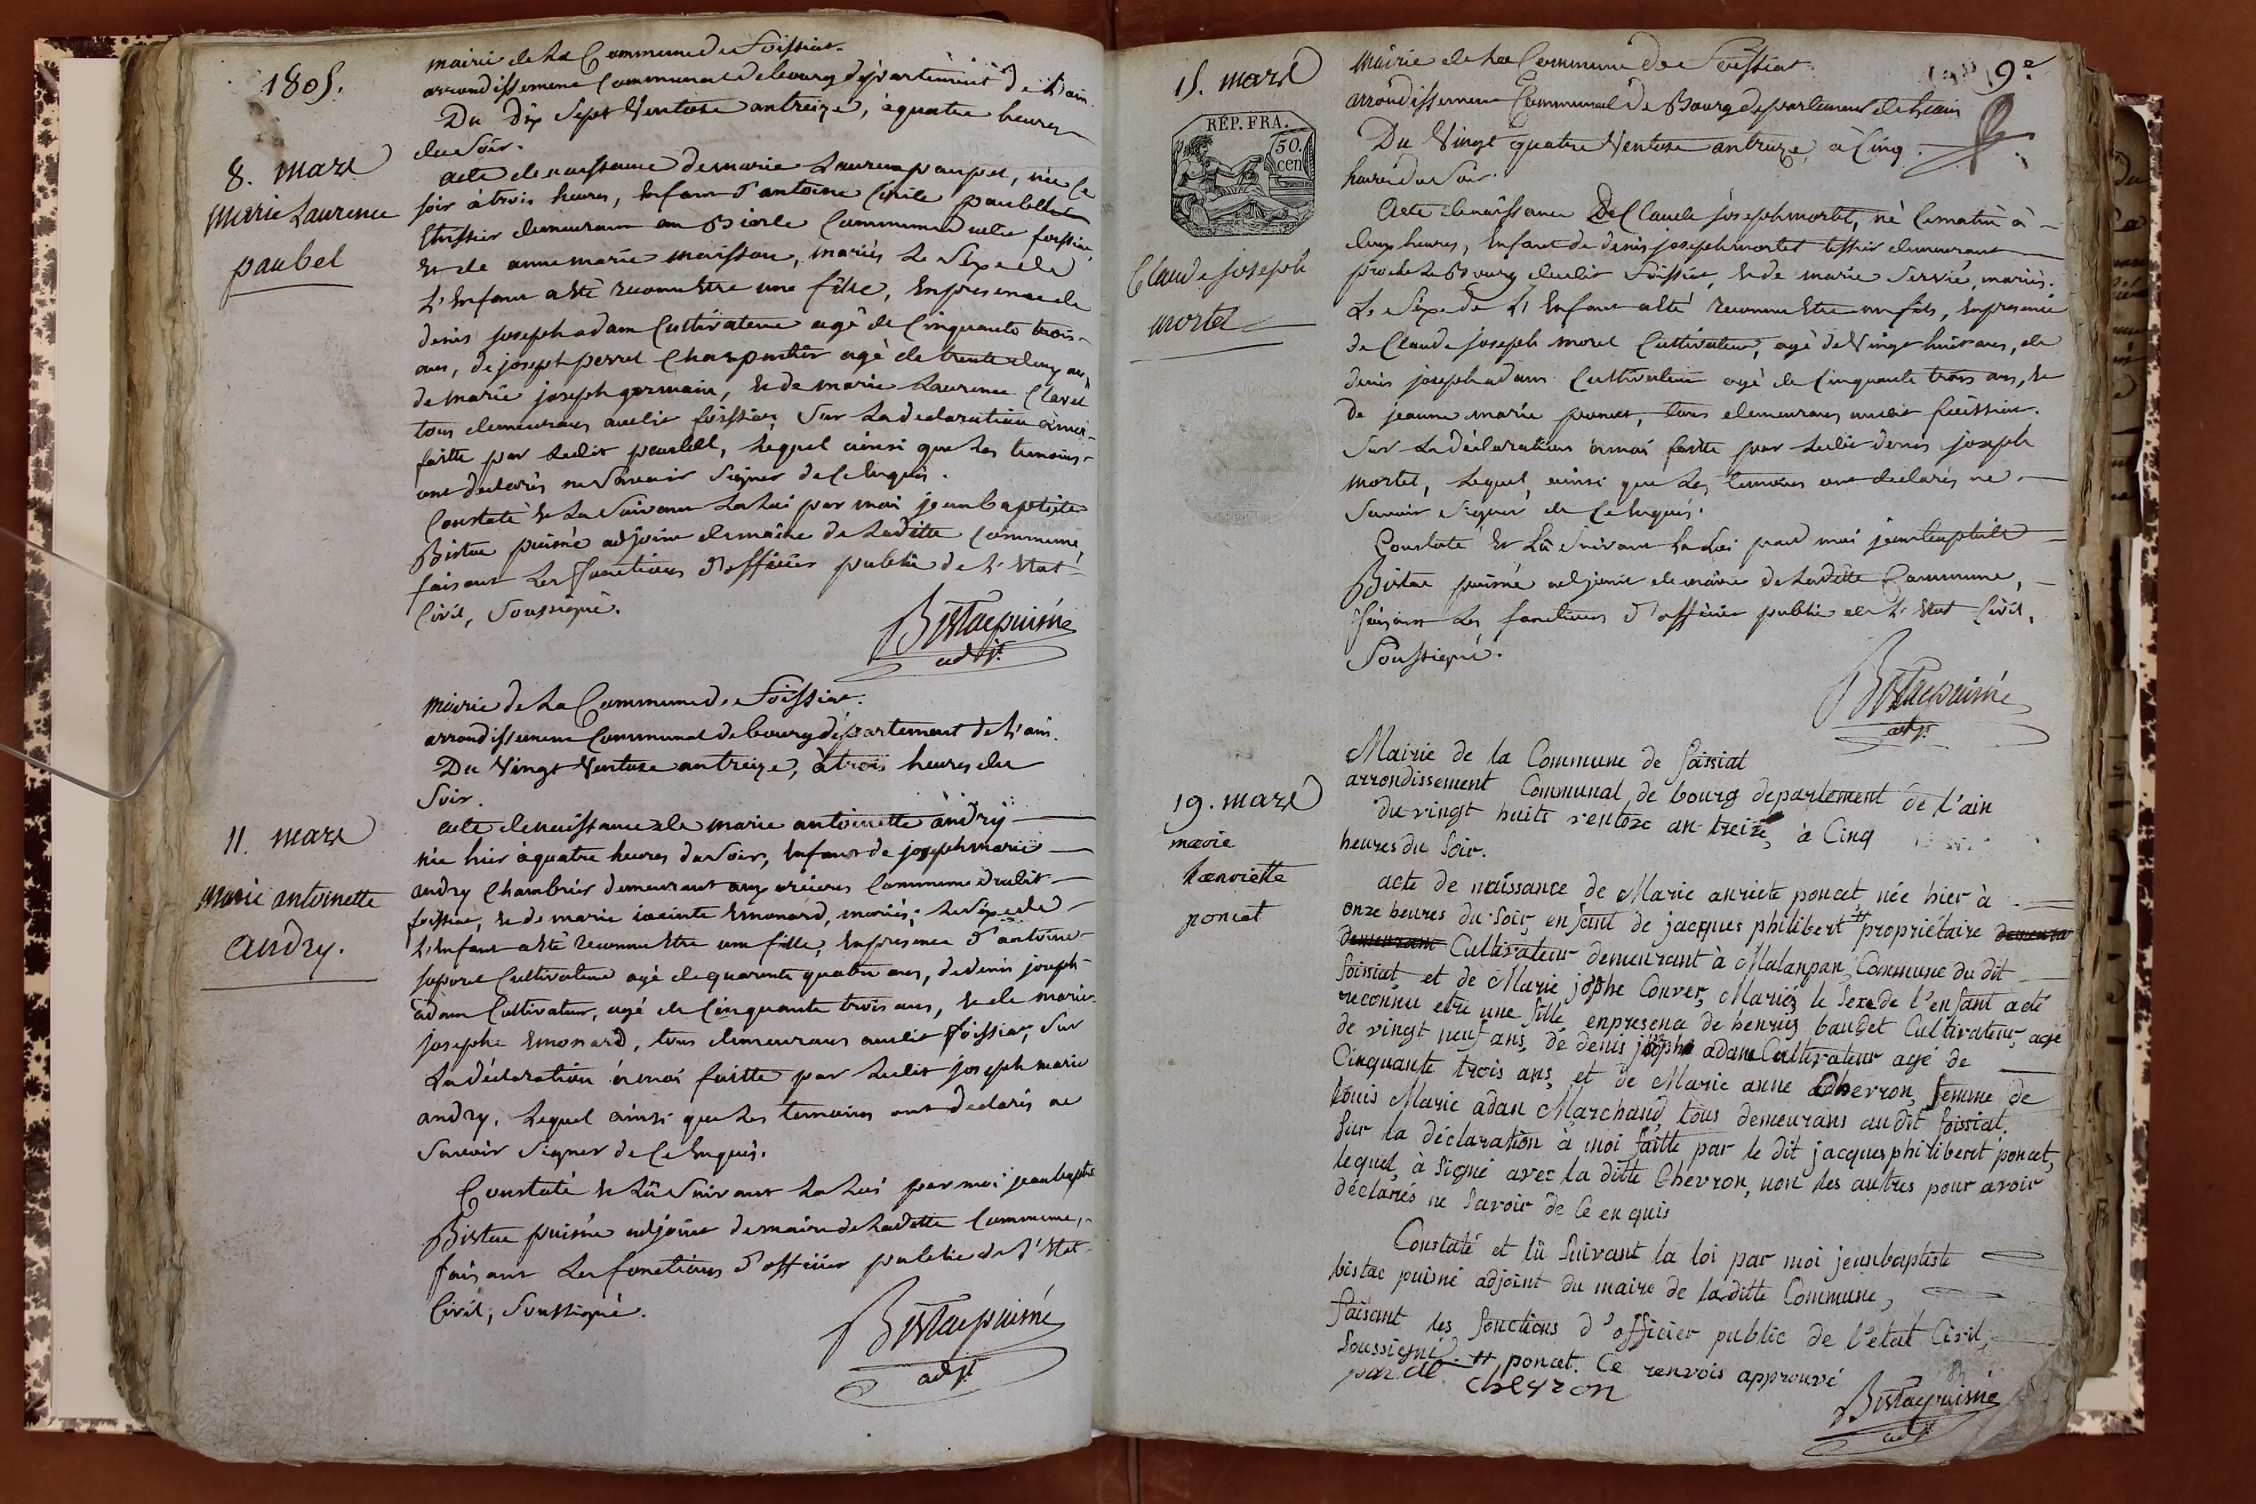 1805.
mairie de la Commune de Foissiat.
arrondissement Communal de bourg département de L'ain.
Du dix Sept Ventose an treize, à quatre heures
du Soir.
8. mars
marie Laurence
paubel
acte de naissance de marie Laurence paupel, née Ce
soir à trois heures, Enfant d'antoine paubel
huissier demeurant au Commune dudit foissiat,
Et de anne marie moisson, mariés Le Sexe de
L'Enfant a Eté reconnu Etre une fille, En presence de
denis joseph adam Cultivateur agé de Cinquante trois
ans, de joseph perret Charpentier agé de trente deux ans
de marie joseph germain, Et de marie Laurence Clavel
tous demeurans audit foissiat, Sur La declaration à moi
faitte par Ledit paubel, Lequel ainsi que Les temoins
ont declarés ne Savoir Signer de Ce Enquis.
Constaté Et Lu Suivant La Loi par moi jean baptiste
Bistac puisné adjoint de maire de Laditte Commune,
faisant Les fonctions d'officier public de L'Etat
Civil, Soussigné.
Bistac puisné
adjt.
mairie de La Commune de Foissiat.
arrondissement Communal de bourg département de L'ain.
Du Vingt Ventose an treize, à trois heures du
Soir.
11. mars
marie antoinette
andry.
acte de naissance de marie antoinette andry
née hier à quatre heures du Soir, Enfant de joseph marie
andry Chambrier demeurant aux Commune dudit
foissiat, Et de marie iacinte Emonard, mariés; Le Sexe de
L'Enfant a Eté reconnu Etre une fille, En presence d'antoine
Cultivateur agé de quarante quatre ans, de denis joseph
adam Cultivateur, agé de Cinquante trois ans, Et de marie
josephe Emonard, tous demeurans audit foissiat, Sur
La déclaration à moi faitte par Ledit joseph marie
andry, Lequel ainsi que Les temoins ont declarés ne
Savoir Signer de Ce Enquis.
Constaté Et Lû Suivant La Loi par moi jean baptiste
Bistac puisné adjoint de maire de Laditte Commune,
faisant Les fonctions d'officier public de L'Etat
Civil, Soussigné.
Bistac puisné
adjt
9.e
15. mars
RÉP. FRA.
50.
cen
Claude joseph
mortel
Mairie de La Commune de Foissiat
arrondissement Communal de Bourg departement de L'ain
Du Vingt quatre Ventose an treize, à Cinq
heures du Soir.
Acte de naissance De Claude joseph mortel, né Ce matin à
deux heures, Enfant de denis joseph mortel tissier demeurant
proche Le Bourg dudit Foissiat, Et de marie Servié, mariés.
Le Sexe de L'Enfant a Eté reconnu Etre un fils, En presence
de Claude joseph morel Cultivateur, agé de Vingt huit ans, de
denis joseph adam Cultivateur agé de Cinquante trois ans, Et
de jeanne marie poncet, tous demeurans audit foissiat.
Sur La déclaration à moi faitte par Ledit denis joseph
mortel, Lequel, ainsi que Les temoins ont declarés ne
Savoir Signer de Ce Enquis.
Constaté Et Lû Suivant La Loi par moi jean baptiste
Bistac puisné adjoint de maire de Laditte Commune,
faisant Les fonctions d'officier public de L'Etat Civil,
Soussigné.
Bistac puisné
adjt.
19. mars
marie
hanriette
poncet
Mairie de la Commune de foissiat
arrondissement Communal de bourg departement de l'ain
du vingt huits ventoze an treize, à Cinq
heures du Soir.
acte de naissance de Marie anriete poncet née hier à
onze heures du Soir, enfant de jacques philibert # propriétaire
Cultivateur demeurant à Malanpan, Commune du dit
foissiat, et de Marie jophe Conver, Mariés le sexe de l'enfant a eté
reconnu etre une fille, en presence de henris baudet Cultivateur, agé
de vingt neuf ans, de denis joseph adam Cultivateur agé de
Cinquante trois ans, et de Marie anne Chevron, femme de
louis Marie adan Marchand, tous demeurans au dit foissiat.
Sur la déclaration à moi faitte par le dit jacques philibert poncet,
lequel à signé avec la ditte Chevron, non les autres pour avoir
déclarés ne Savoir de Ce enquis
Constaté et lû suivant la loi par moi jean baptiste
bistac puisné adjoint du maire de laditte Commune,
faisant les fonctions d'officier public de l'etat Civil,
Soussigné. # poncet. Ce renvois approuvé
chevron
Bistac puisné
adjt